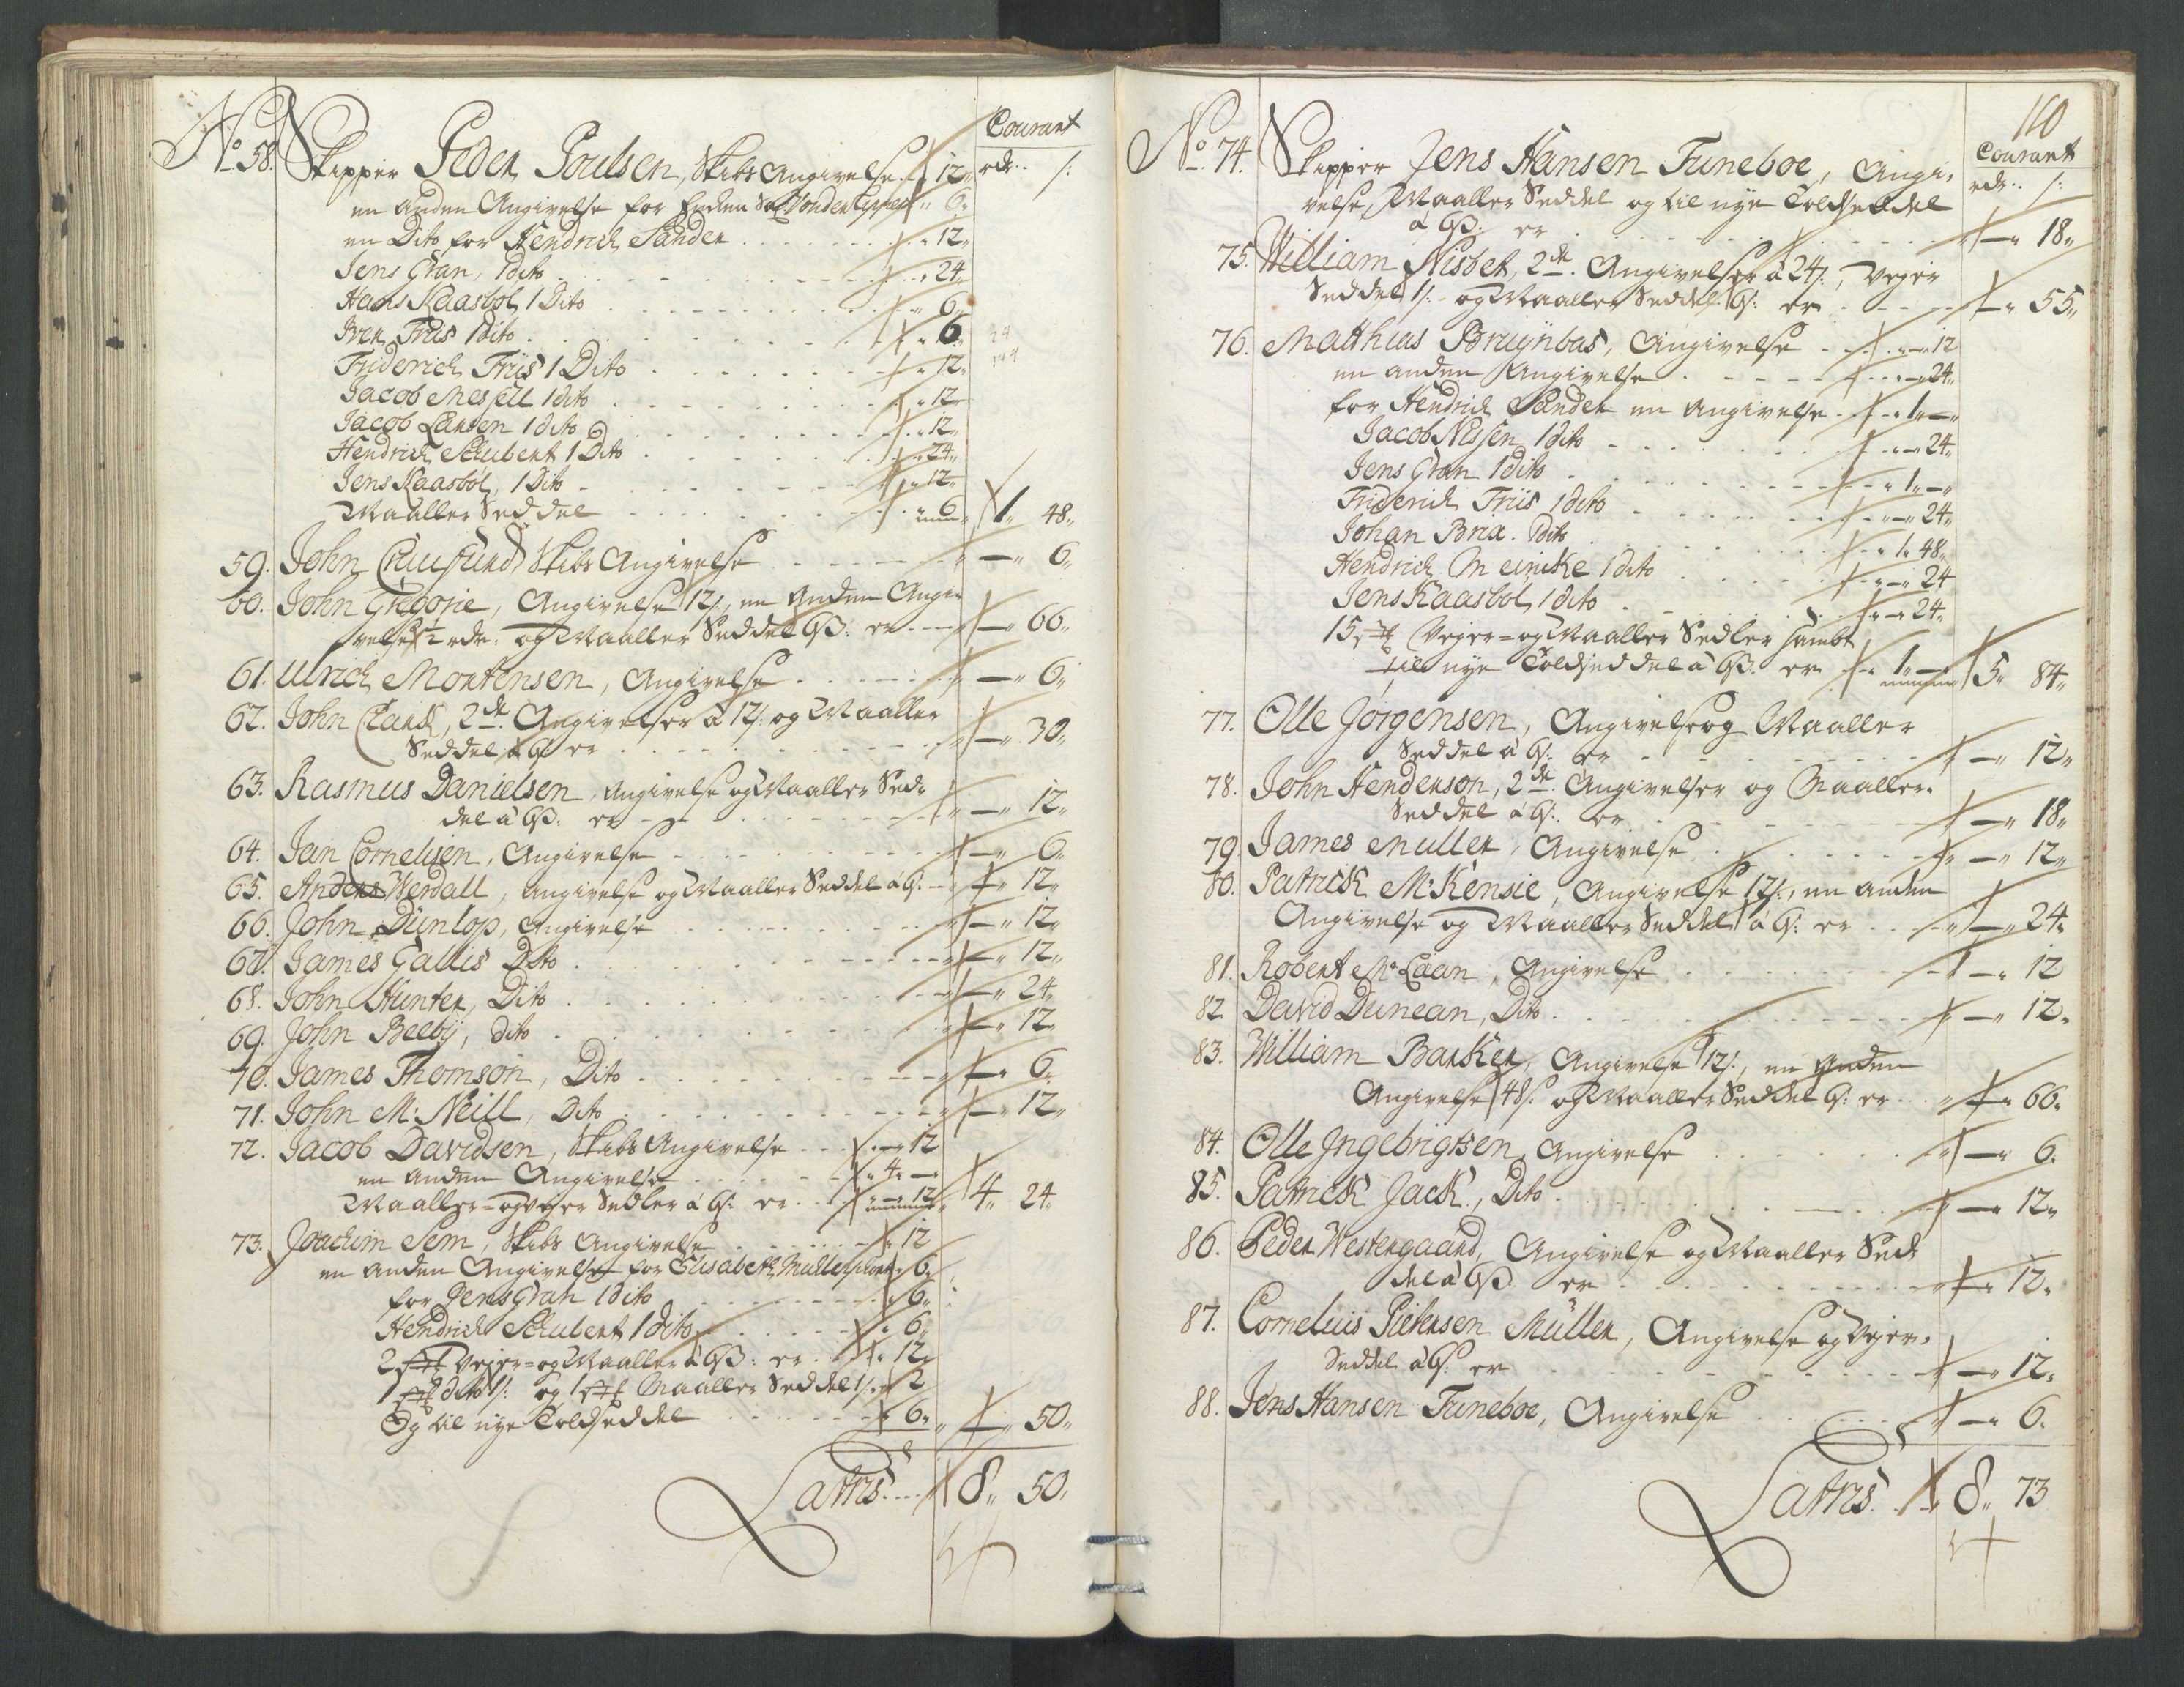 Courant
rdr. /:
No. 58. Skipper Peder Poulsen, Skibs Angivelse 12„
en anden Angivelse for „ 6„
en Dito for Hendrich Sander „ 12„
Jens Gran, 1 dito „ 24„
Hans Kaasbøl 1 Dito „ 6„
Iver Friis 1 dito „ 6„
Friderich Friis 1 Dito „ 12„
Jacob Messell 1 dito „ 12„
Jacob Larsen 1 dito „ 12„
Hendrich Schubert 1 Dito „ 24„
Jens Kaasbøl, 1 Dito „ 12„
Maaller Seddel „ 6„ 1„ 48„
59. John Skibs Angivelse — „ 6„
60. John Gregorie, Angivelse 12/:, en anden Angi-
velse ½ rdr: og Maaller Seddel 6ß: er — „ 66„
61. Ulrich Mortensen, Angivelse — „ 6„
62. John Clark, 2de Angivelser à 12/: og Maaller
Seddel à 6/: er — „ 30„
63. Rasmus Danielsen, Angivelse og Maaller Sed-
del à 6ß: er — „ 12„
64. Jan Cornelisen, Angivelse — „ 6„
65. Anders Werdall, Angivelse og Maaller Seddel à 6/: — „ 12„
66. John Dunlop, Angivelse — „ 12„
67. James Gallis Dito — „ 12„
68. John Hunter, Dito — „ 24„
69. John Beeby, dito — „ 12„
70. James Thomson, Dito — „ 6„
71. John Mc Neill, Dito — „ 12„
72. Jacob Davidsen, Skibs Angivelse „ — „ 12
en anden Angivelse „ 4„ —
Maaller- og Vejer Sedler à 6/: er „ — 12„ 4„ 24„
73. Joachim Sem, Skibs Angivelse „ 12
en anden Angivelse for Elisabeth „ 6„
for Jens Gran 1 dito „ 6„
Hendrich Schubert 1 dito „ 6„
2 st: Vejer- og Maaller à 6ß: er „ 12„
1 st: dito 1/: og 1 st: Maaller Seddel 1/: 2
Og til nye Toldseddel „ 6„ — „ 50„
Latris 8„ 50„
110
Courant
rdr. /:
No. 74. Skipper Jens Hansen Funeboe, Angi-
velse, Maaller Seddel og til nye Toldseddel
à 6ß: er — „ 18„
75. William Nisbet, 2de Angivelser à 24/:, Vejer
Seddel 1/: og Maaller Seddel 6/: er — „ 55„
76. Matthias Bruynbas, Angivelse „ — „ 12
en anden Angivelse „ — „ 24„
for Hendrich Sander en Angivelse „ 1„ —„
Jacob Nissen 1 dito „ — „ 24„
Jens Gran 1 dito „ 1„ —„
Friderich Friis 1 dito „ — „ 24„
Johan Brix. 1 dito „ 1„ 48„
Hendrich Meincke 1 dito „ — „ 24
Jens Kaasbøl, 1 dito „ — „ 24„
15 st: Vejer- og Maaller Sedler samt
til nye Toldseddel à 6ß: er „ 1„ —„ 5„ 84„
77. Olle Jørgensen, Angivelse og Maaller
Seddel à 6/: er — „ 12„
78. John Henderson, 2de Angivelser og Maaller-
Seddel à 6/: er — „ 18„
79. James Muller, Angivelse — „ 12„
80. Patrick Mc Kensie, Angivelse 12/:, en anden
Angivelse og Maaller Seddel à 6/: er — „ 24„
81. Robert Mc Laan, Angivelse — „ 12
82. David Duncan, Dito — „ 12„
83. William Barker, Angivelse 12/:, en anden
Angivelse 48/: og Maaller Seddel 6/: er — „ 66„
84. Olle Ingebrigtsen, Angivelse — „ 6„
85. Patrick Jack, Dito — „ 12„
86. Peder Westergaard, Angivelse og Maaller Sed-
del à 6ß er — „ 12„
87. Cornelius Pietersen Müller, Angivelse og Vejer-
Seddel à 6/: er — „ 12„
88. Jens Hansen Funeboe, Angivelse — „ 6„
Latris 8„ 73